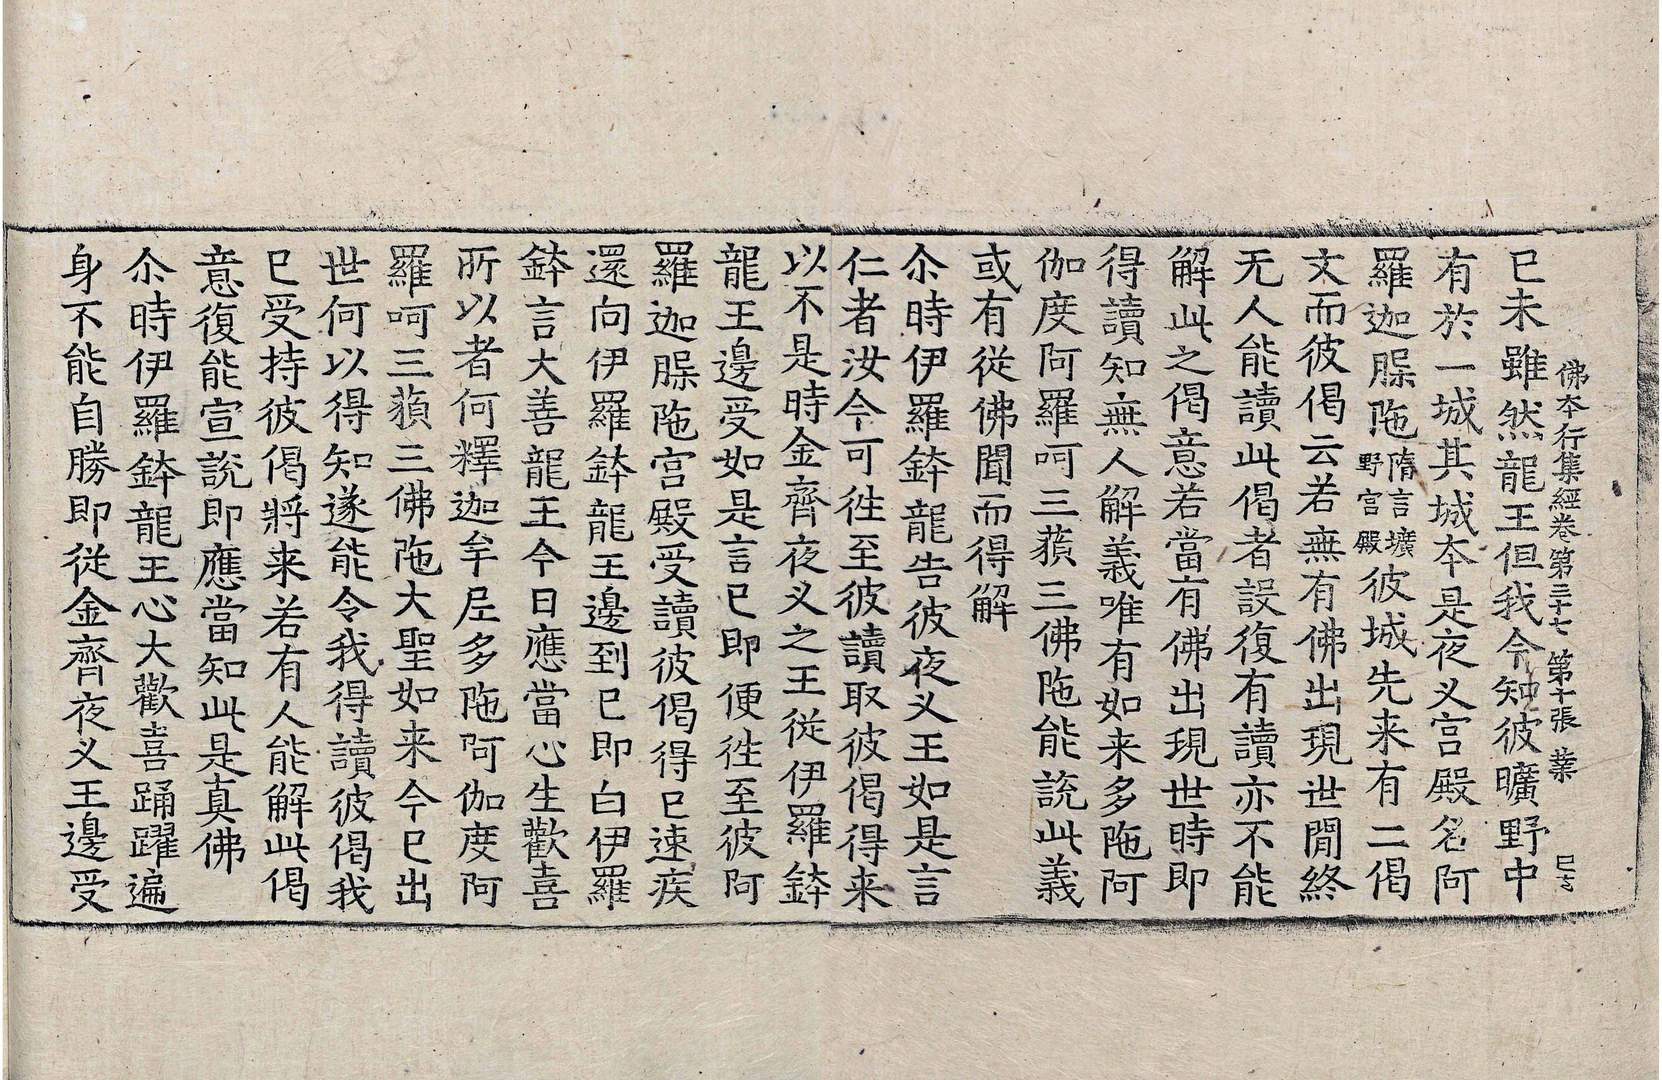 佛本行集經卷第三十七　第十張　業
已未雖然龍王但我今知彼曠野中
有於一城其城本是夜义宫殿名阿
羅迦䐗陁隋言壙野宫殿彼城先来有二偈
文而彼偈云若無有佛出現世間終
无人能讀此偈者設復有讀亦不能
解此之偈意若當有佛出現世時即
得讀知無人解義唯有如来多陁阿
伽度阿羅呵三藐三佛陁能說此義
或有從佛聞而得解
尒時伊羅鉢龍告彼夜义王如是言
仁者汝今可往至彼讀取彼偈得来
以不是時金齊夜义之王從伊羅鉢
龍王邊受如是言已即便往至彼阿
羅迦䐗陁宫殿受讀彼偈得已速疾
還向伊羅鉢龍王邊到已即白伊羅
鉢言大善龍王今日應當心生歡喜
所以者何釋迦牟尼多陁阿伽度阿
羅呵三藐三佛陁大聖如来今已出
世何以得知遂能令我得讀彼偈我
已受持彼偈將来若有人能解此偈
意復能宣說即應當知此是真佛
尒時伊羅鉢龍王心大歡喜踊躍遍
身不能自勝即從金齊夜义王邊受